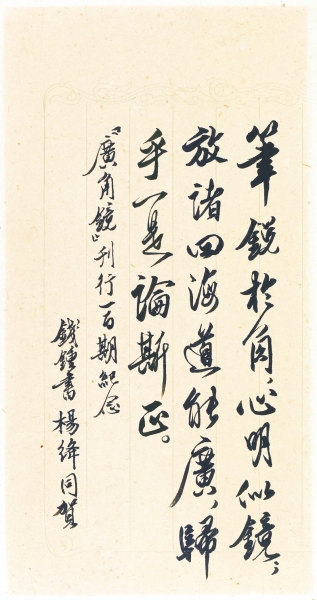 筆銳於角，心明似鏡；
放諸四海道能廣，歸
乎一是論斯正。
『廣角鏡』刊行一百期紀念
錢鍾書 楊絳同賀